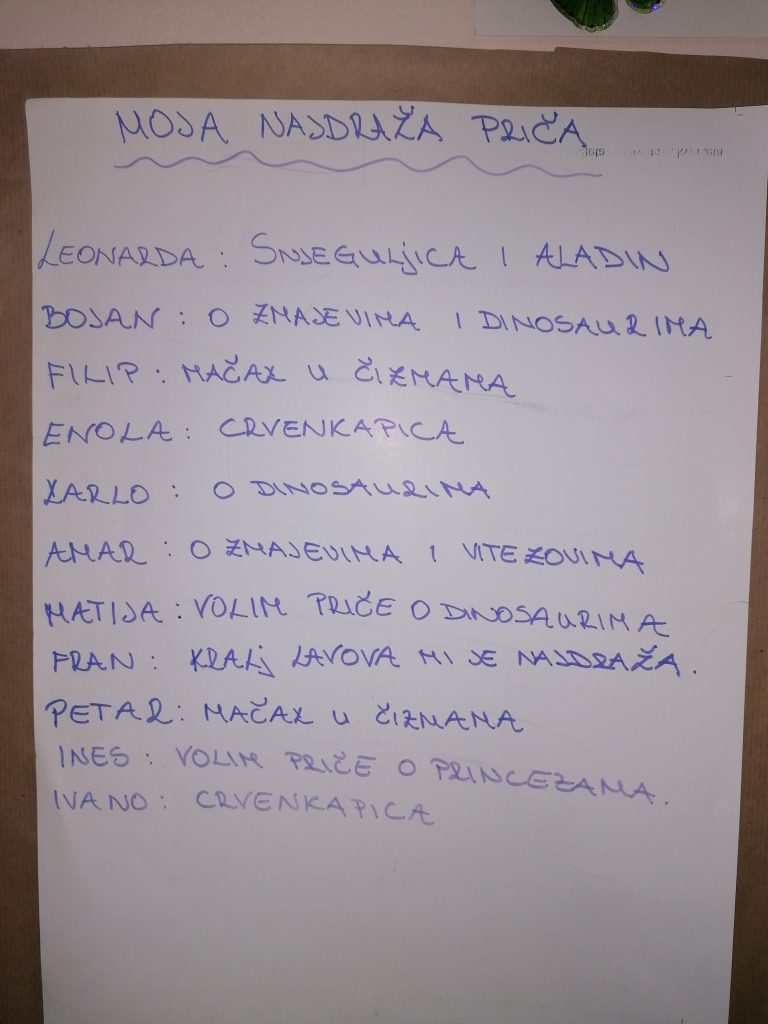 MOJA NAJDRAŽA PRIČA
LEONARDA: SNJEGULJICA I ALADIN
BOJAN: O ZMAJEVIMA I DINOSAURIMA
FILIP: MAČAK U ČIZMAMA
ENOLA: CRVENKAPICA
KARLO: O DINOSAURIMA
AMAR: O ZMAJEVIMA I VITEZOVIMA
MATIJA: VOLIM PRIČE O DINOSAURIMA
FRAN: KRALJ LAVOVA MI JE NAJDRAŽA.
PETAR: MAČAK U ČIZMAMA
INES: VOLIM PRIČE O PRINCEZAMA.
IVANO: CRVENKAPICA